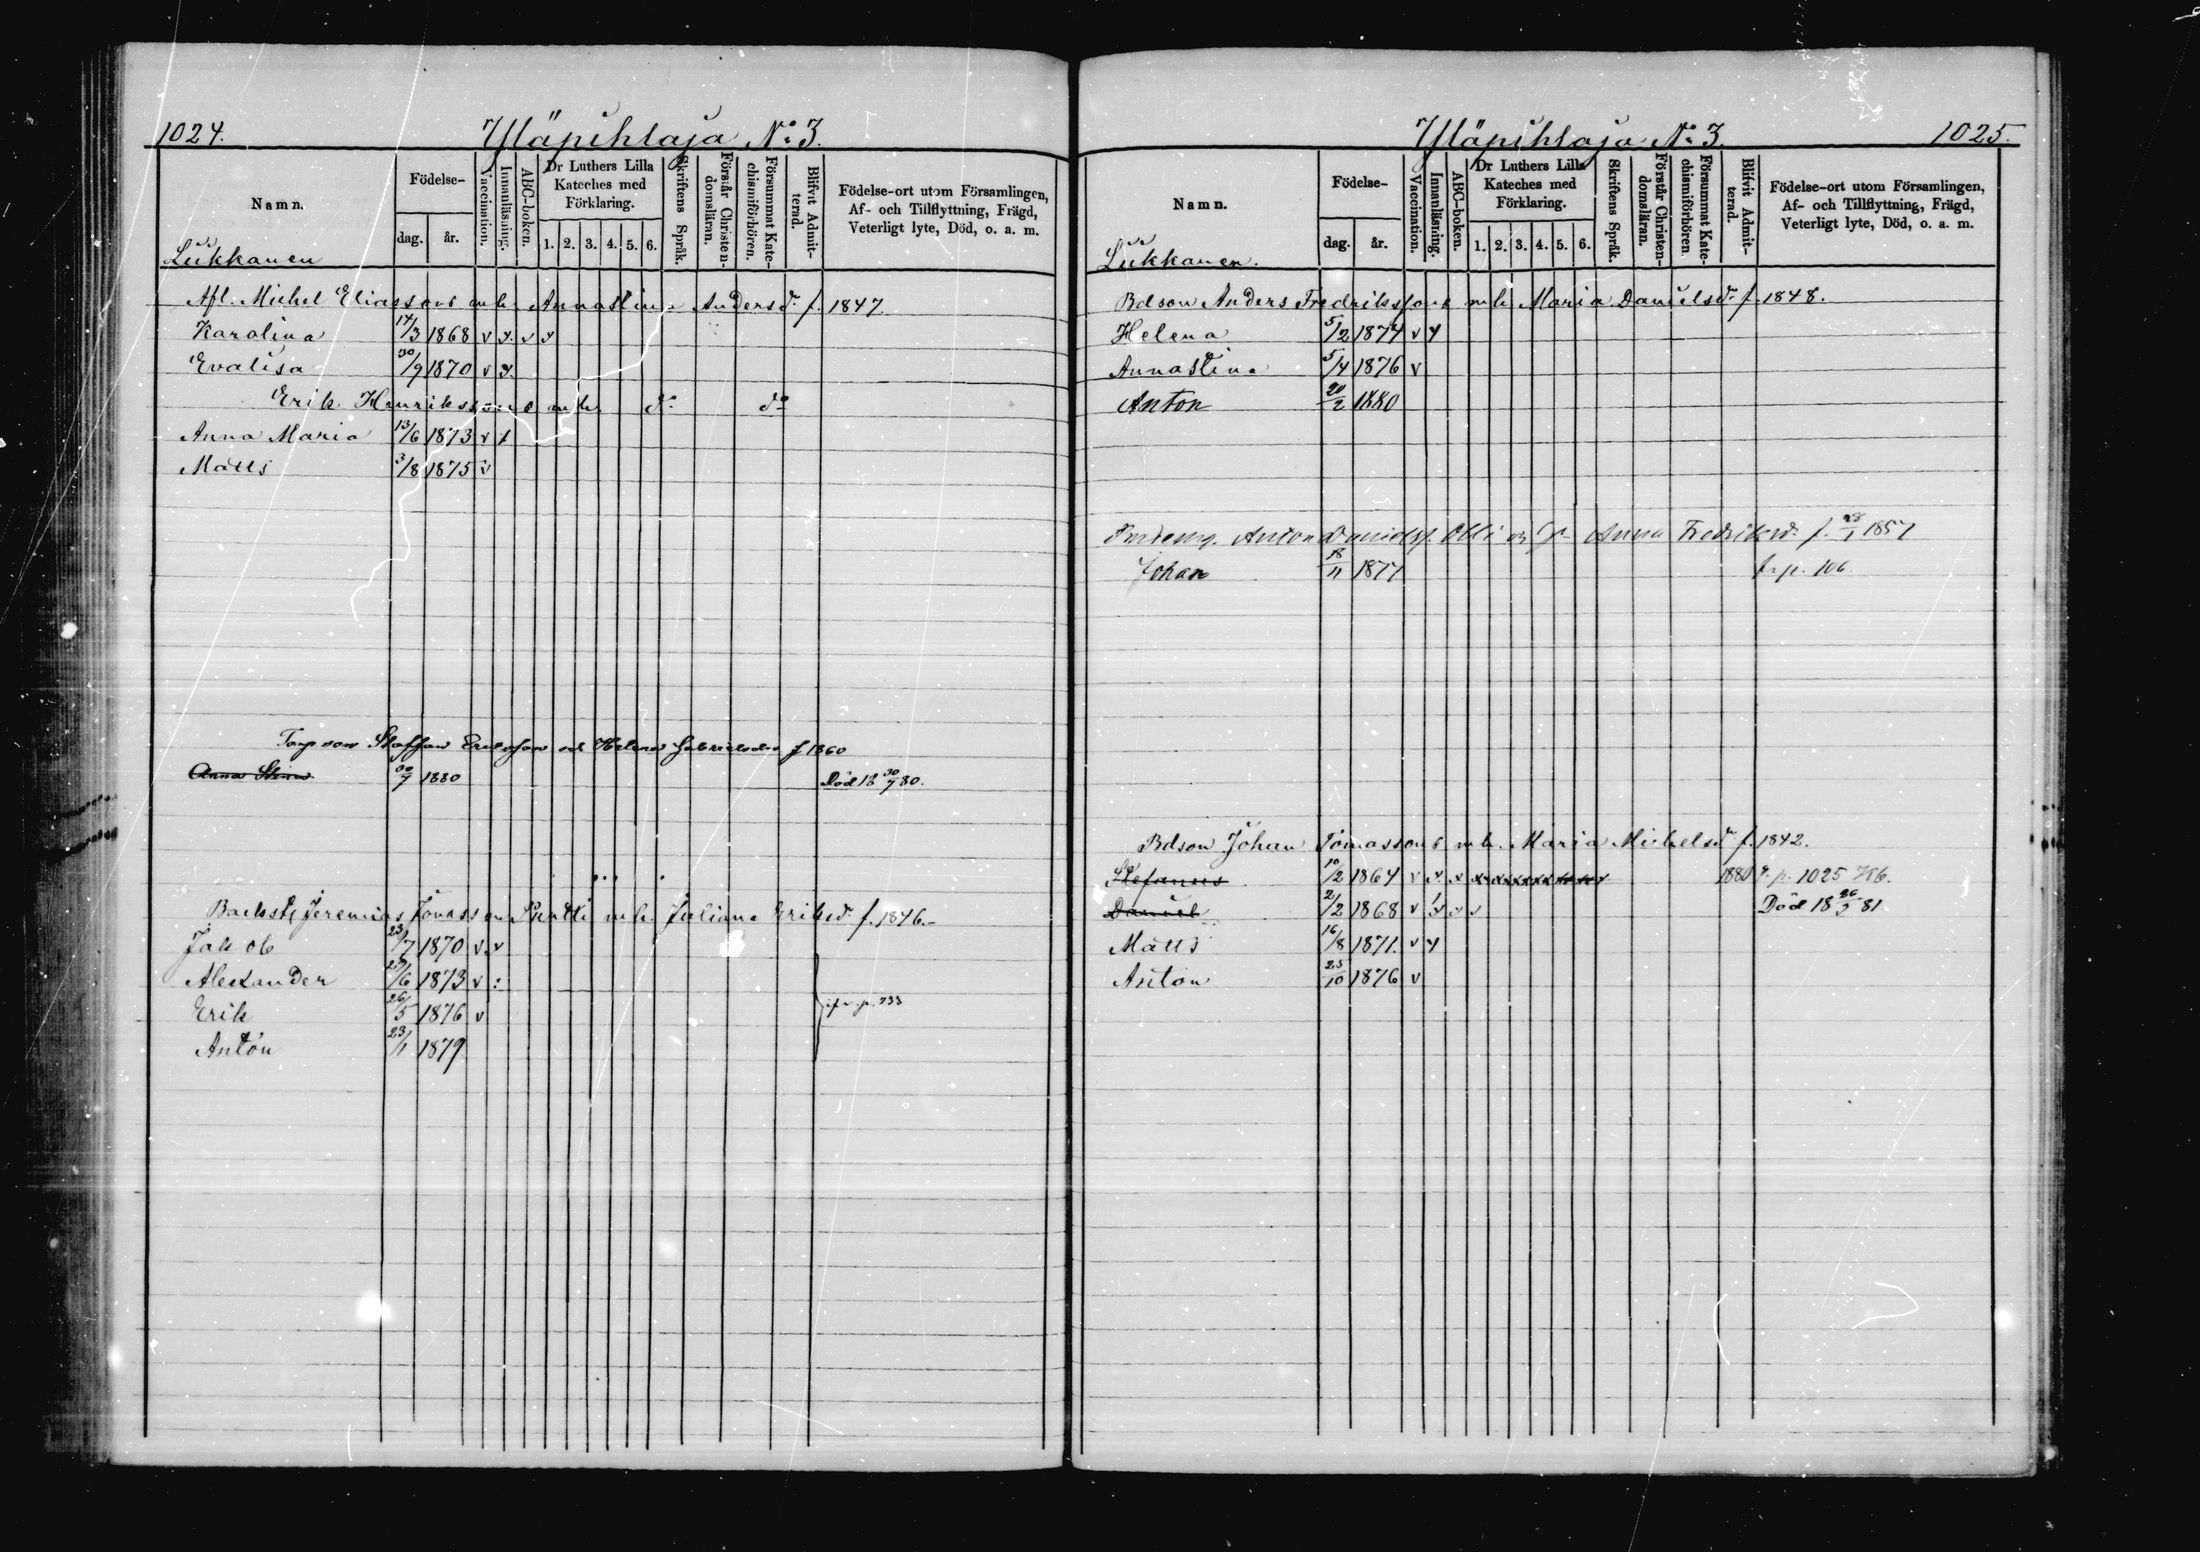 1024. Yläpihlaja No 3.
Namn. Födelse- dag. år. Vaccination. Innanläsning. ABC-boken. Dr Luthers Lilla Kateches med Förklaring. 1. 2. 3. 4. 5. 6. Skriftens Språk. Förstår Christendomsläran. Försummat Katechismiförhören. Blifvit Admitterad. Födelse-ort utom Församlingen, Af- och Tillflyttning, Frägd, Veterligt lyte, Död, o. a. m.
Liikkanen
Afl. Michel Eliassons m h. Annastina Andersdr f. 1847.
Karolina 14/3 1868 v v v v
Evalisa 30/9 1870 v v
Erik Henrikssons m h. do do
Anna Maria 13/6 1873 v v
Matts 3/8 1875 v
Torp son Staffan Eriksson och Helena Gabrielsdr f 1860
Anna Stina 30/7 1880 Död 18 30/7 80.
Backst. Jeremias Jonasson Puntti m h. Juliana Eriksdr f. 1846.
Jakob 23/7 1870 v v
Alexander 29/6 1873 v :
Erik 26/5 1876 v p. 733
Anton 23/11 1879
1025. Yläpihlaja No 3.
Namn. Födelse- dag. år. Vaccination. Innanläsning. ABC-boken. Dr Luthers Lilla Kateches med Förklaring. 1. 2. 3. 4. 5. 6. Skriftens Språk. Förstår Christendomsläran. Försummat Katechismiförhören. Blifvit Admitterad. Födelse-ort utom Församlingen, Af- och Tillflyttning, Frägd, Veterligt lyte, Död, o. a. m.
Liikkanen.
Bdson Anders Fredrikssons m h. Maria Danielsdr f. 1848.
Helena 5/2 1874 v v
Annastina 5/4 1876 v
Anton 20/2 1880
Anton Danielss. Olli o h Anna Fredriksdr f. 28/1 1857
Johan 18/11 1877 fr p. 106.
Bdson Johan Tomassons m h. Maria Michelsdr f. 1842.
Stefanus 10/2 1864 v x x x x x x x x x x x 1880 p. 1025 Kb.
Daniel 2/2 1868 v v v v Död 18 26/3 81.
Matts 16/8 1871. v v
Anton 25/10 1876 v